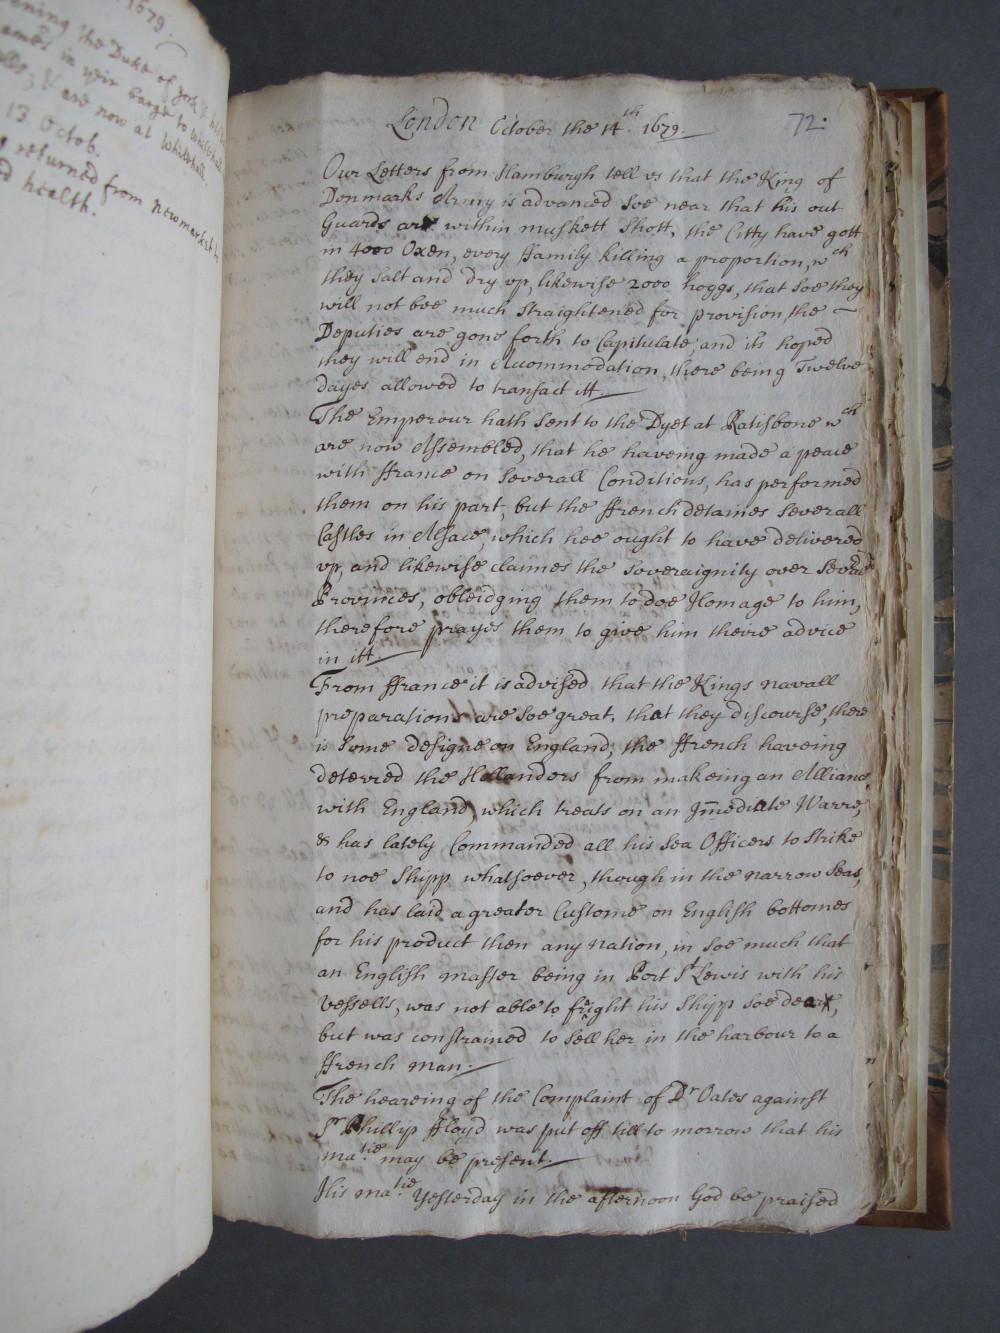 1679.
ening the Duke of york &
James in yeir barge to whitehall
& are now at Whitehall.
13. Octob.
returned from Newmarket in
d health.
72.
London October the 14th. 1679.
Our Letters from Hamburgh tell vs that the King of
Denmarks Army is advanced soe near that his out
Guards are within muskett Shott, the Citty have gott
in 4000 Oxen, every ffamily killing a proportion, wch
they salt and dry vp, likewise 2000 hoggs, that soe they
will not bee much straightened for provision, the
Deputies are gone forth to Capitulate, and its hoped
they will end in Accommodation, there being Twelve
dayes allowed to transact itt.
The Emperour hath sent to the Dyet at Ratisbone wch
are now Assembled, that he haveing made a peace
with ffrance on severall Conditions, has performed
them on his part, but the ffrench detaines severall
Castles in Alsace, which hee ought to have delivered
vp, and likewise claimes the soveraignity over severall
Provinces, obleidging them to doe Homage to him,
therefore prayes them to give him theire advice
in itt.
From ffrance it is advised that the Kings navall
preparations are soe great, that they discourse, there
is some designe on England; the ffrench haveing
deterred the Hollanders from makeing an Alliance
with England, which treats on an Im̄ediate Warre,
& has lately Commanded all his Sea Officers to Strike
to noe Shipp whatsoever, though in the narrow Seas,
and has laid a greater Custome on English bottomes
for his product then any nation, in soe much that
an English master being in Port St Lewis with his
vessells, was not able to freight his Shipp soe deare,
but was constrained to sell her in the harbour to a
ffrench man.
The heareing of the Complaint of Dr Oates against
Sr Phillip ffloyd was put off till to morrow that his
matie may be present.
His matie yesterday in the afternoon God be praised